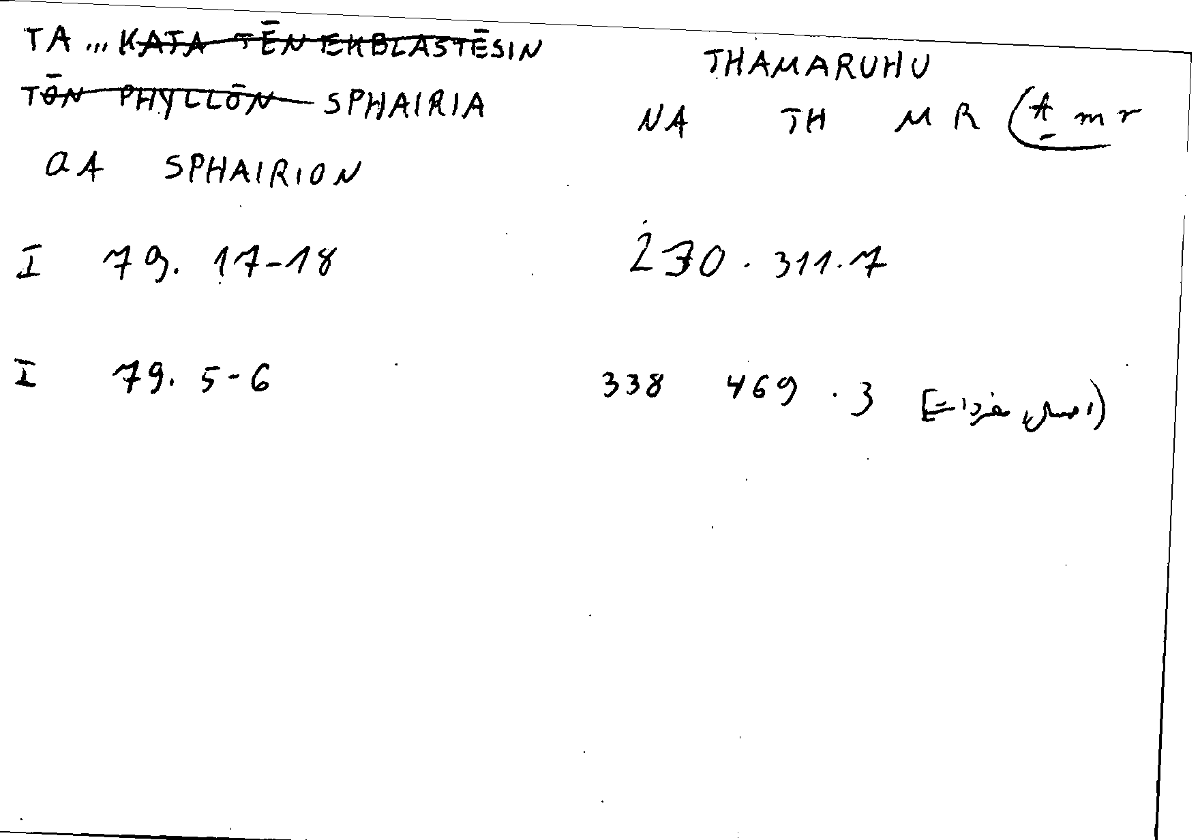 TA ... KATA TĒN EKBLASTĒSIN THAMARUHU
TŌN PHYLLŌN SPHAIRIA NA TH M R (A̲ m r
aA SPHAIRION
I 79. 17-18 230 . 311.7
I 79. 5-6 338 469 . 3